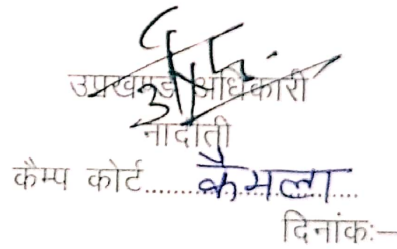 उपखण्ड अधिकारी
नादौती
कैम्प कोर्ट......कैमला......
दिनांक:-